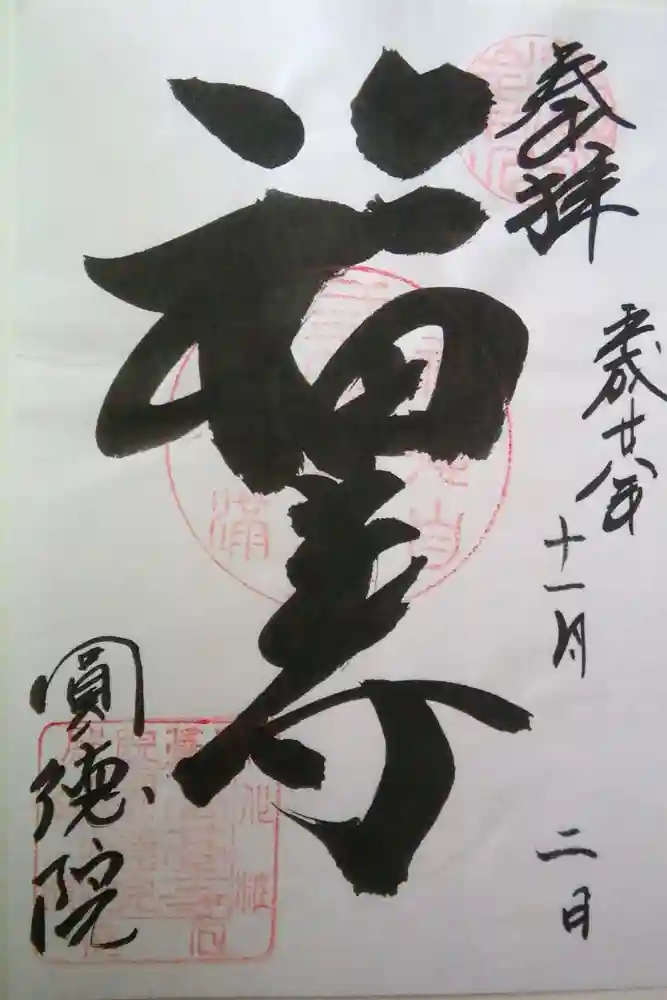 奉拝
平成廿八年
十一月
二日
福寿
圓徳院